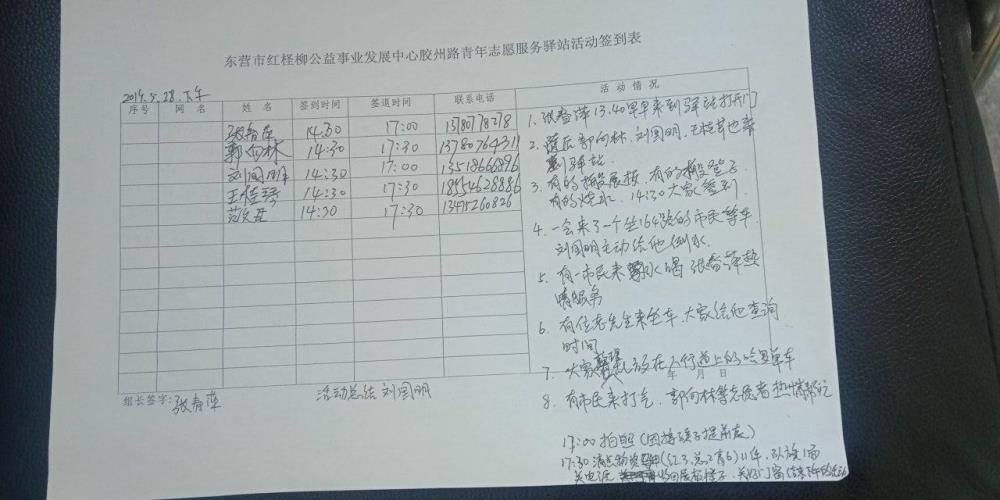 东营市红柽柳公益事业发展中心胶州路青年志愿服务驿站活动签到表
5.28.下午
序号 网名 姓名 签到时间 签退时间 联系电话 活动情况
张春萍 14:30 17:00
郭向林 14:30 17:30
刘国明 14:30 17:00 13518666896
王桂芬 14:30 17:30 18554628886
14:30 17:30 13475260826
1. 张春萍13.40早早来到驿站打开门
2. 随后郭向林.刘国明.王桂芬也来
到驿站.
3. 有的搬展板.有的搬凳子
有的烧水. 14:30大家签到.
4. 一会来了一个坐164路的市民等车.
刘国明主动给他倒水.
5. 有一市民来水喝 张春萍热
情服务
6. 有位老先生来坐车.大家给他查询
时间
7. 大家整理乱放在人行道上的哈罗单车
年 月 日
8. 有市民来打气. 郭向林等志愿者热情帮忙
组长签字: 张春萍
活动总结 刘国明
17:00 拍照(因接孩子提前走)
17:30 清点物资 11件.队旗1面
关电源